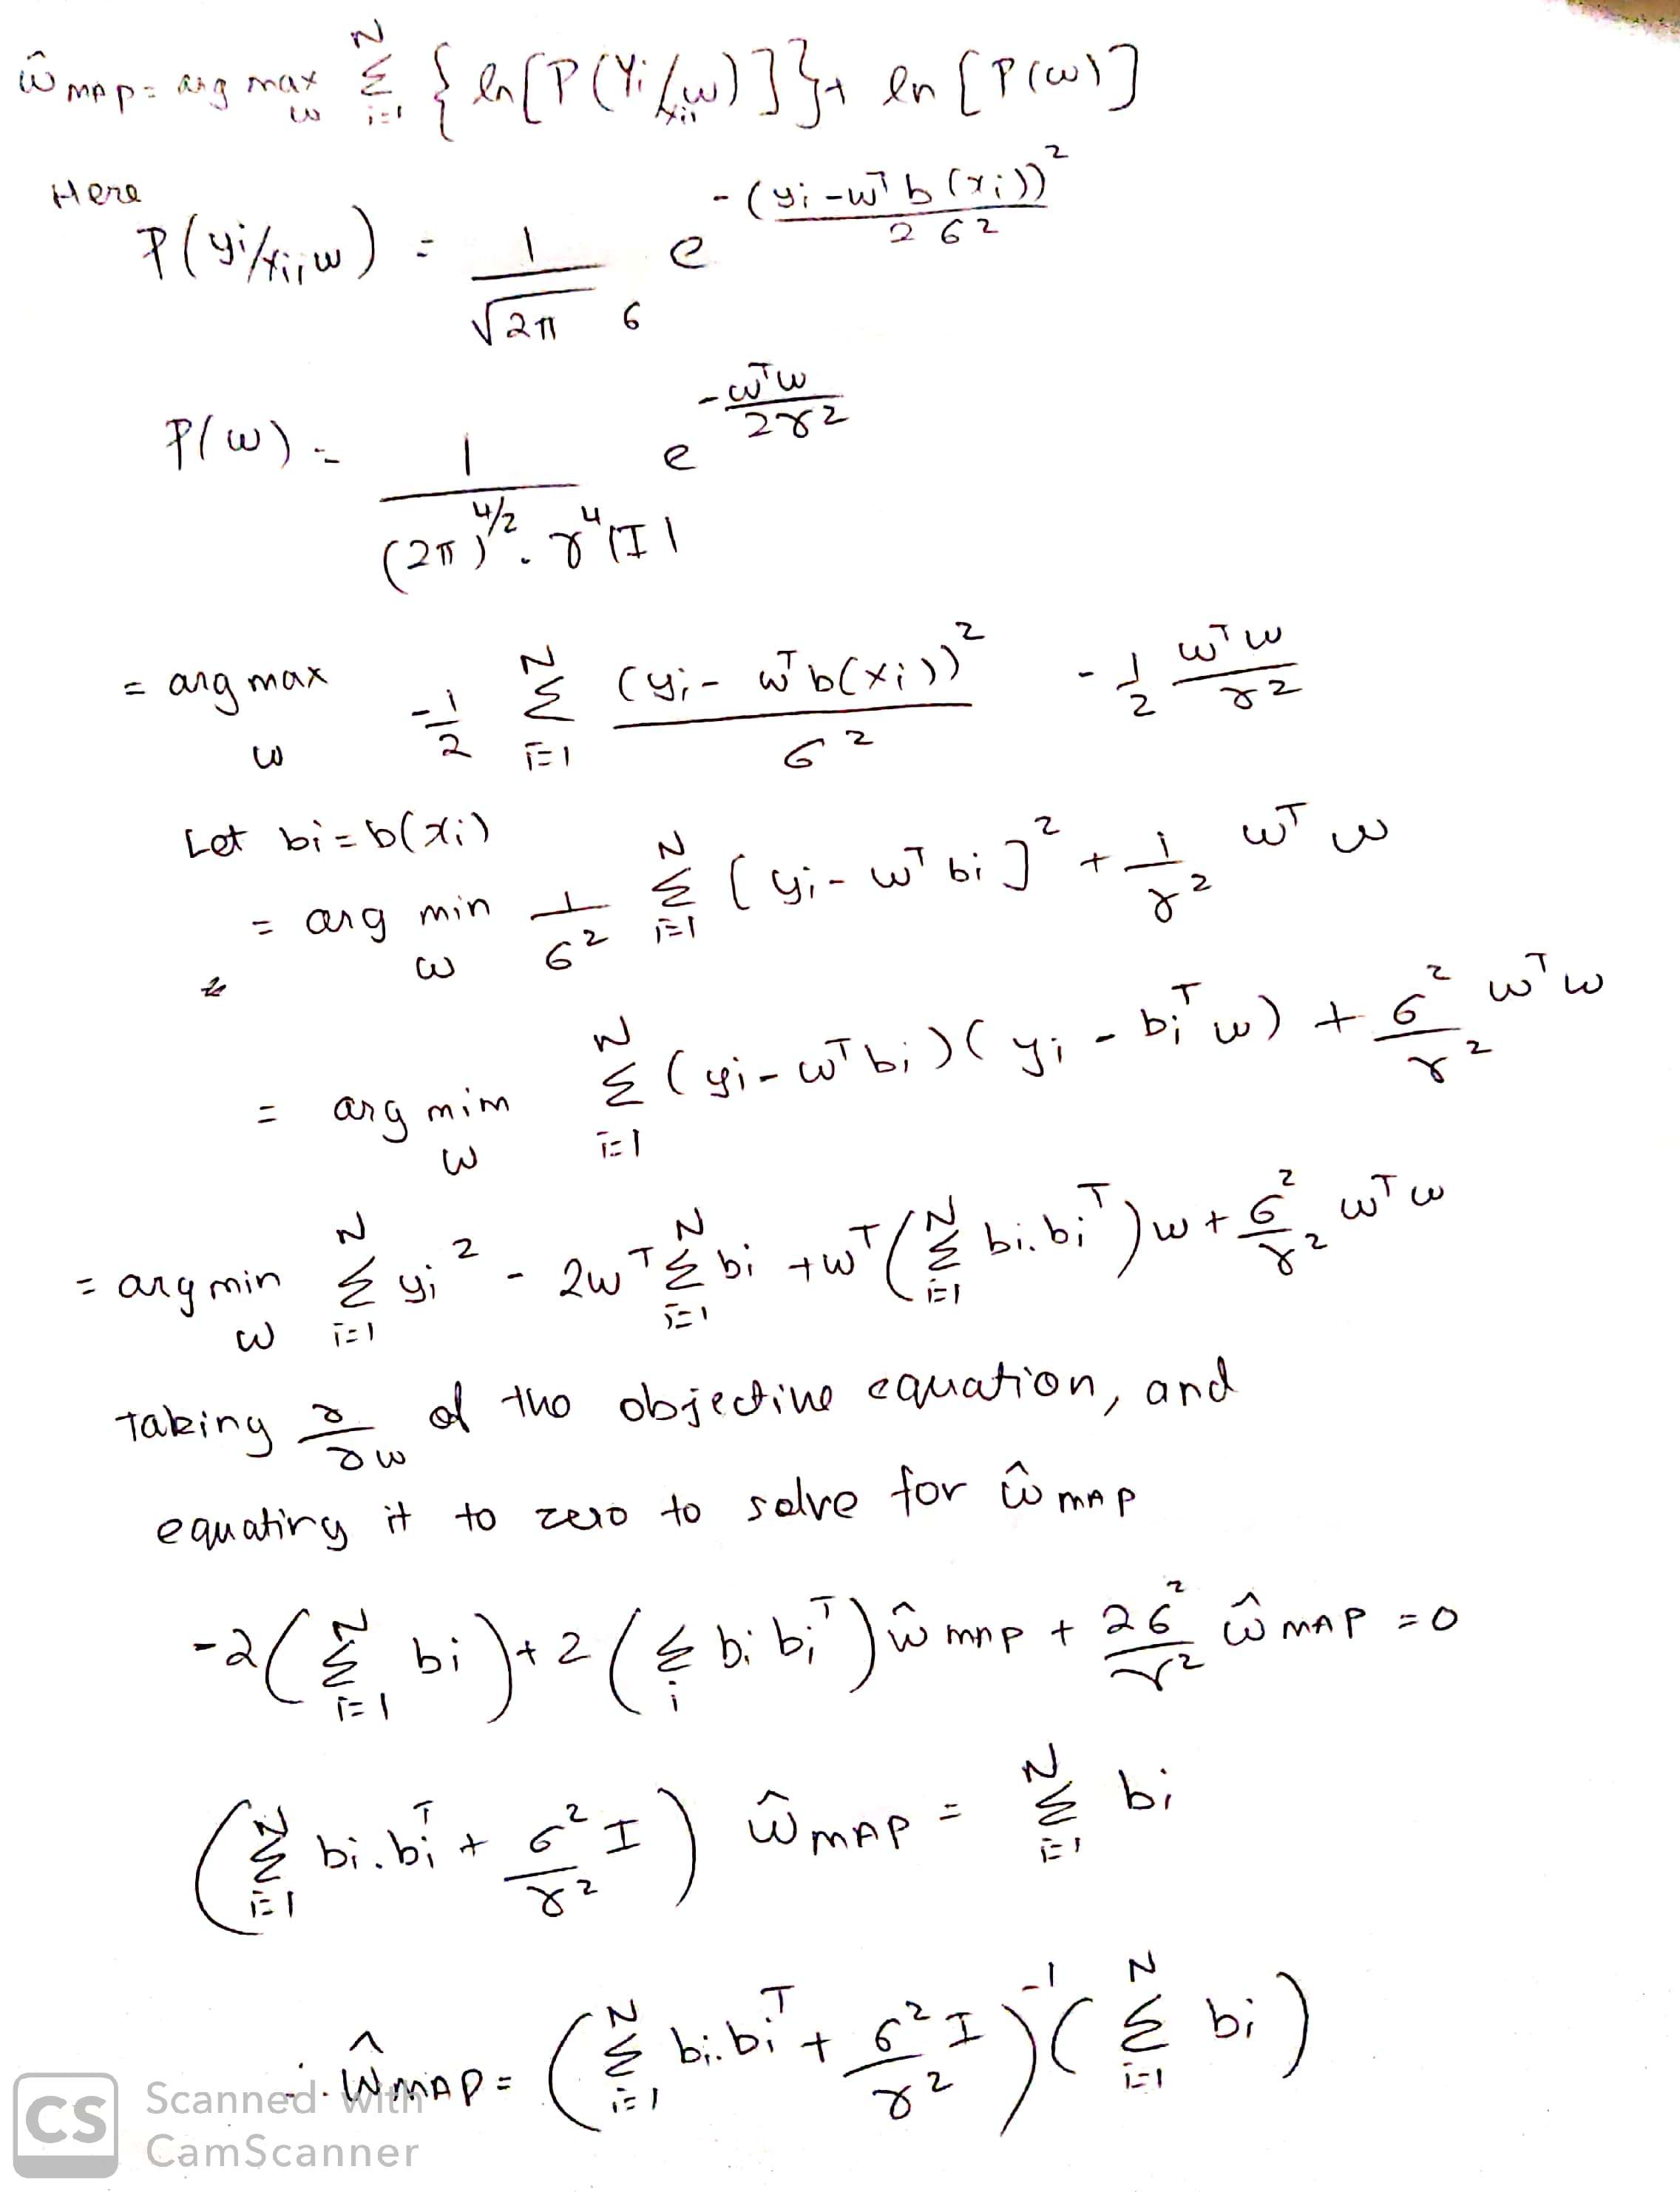 ŵ MAP = arg max_w Σ_{i=1}^{N} { ln[P(Yi/xi,w)] } + ln [P(w)]
Here
P(yi/xi,w) = 1/(√2π σ) e^{-(yi - w^T b(xi))^2 / 2σ^2}
P(w) = 1/((2π)^{4/2} . γ^4 |I|) e^{-w^T w / 2γ^2}
= arg max_w -1/2 Σ_{i=1}^{N} (yi - w^T b(xi))^2 / σ^2 - 1/2 w^T w / γ^2
Let bi = b(xi)
= arg min_w 1/σ^2 Σ_{i=1}^{N} [yi - w^T bi]^2 + 1/γ^2 w^T w
= arg mim_w Σ_{i=1}^{N} (yi - w^T bi)(yi - bi^T w) + σ^2/γ^2 w^T w
= arg min_w Σ_{i=1}^{N} yi^2 - 2w^T Σ_{i=1}^{N} bi + w^T (Σ_{i=1}^{N} bi.bi^T) w + σ^2/γ^2 w^T w
Taking ∂/∂w of the objective equation, and
equating it to zero to solve for ŵ MAP
-2(Σ_{i=1}^{N} bi) + 2(Σ_i bi bi^T) ŵ MAP + 2σ^2/γ^2 ŵ MAP = 0
(Σ_{i=1}^{N} bi.bi^T + σ^2/γ^2 I) ŵ MAP = Σ_{i=1}^{N} bi
∴ ŵ MAP = (Σ_{i=1}^{N} bi.bi^T + σ^2/γ^2 I)^{-1} (Σ_{i=1}^{N} bi)
CS Scanned with
CamScanner